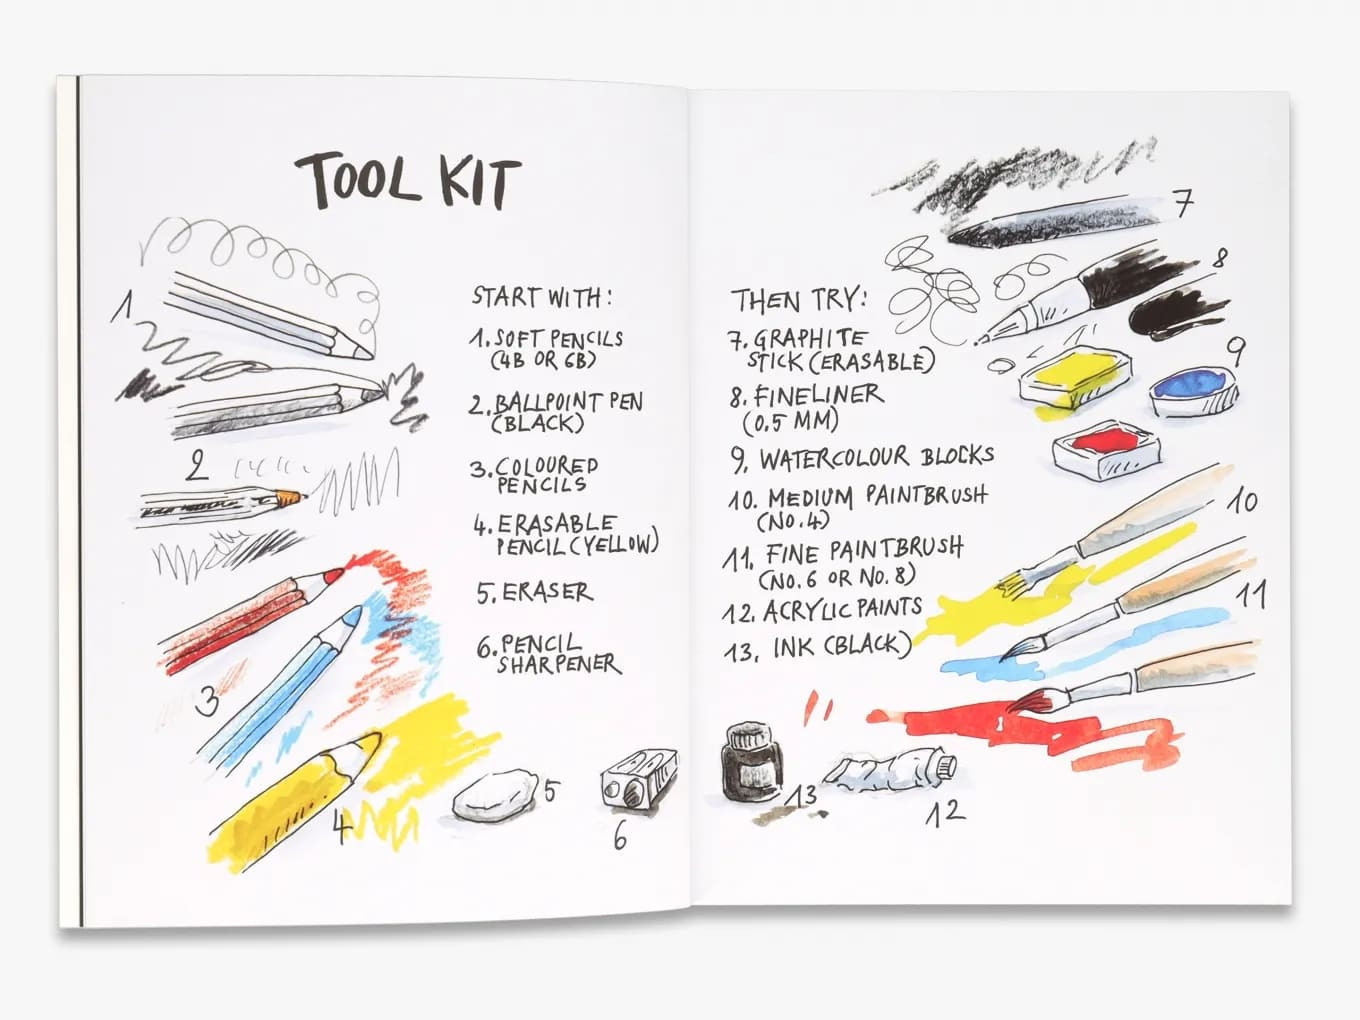 TOOL KIT
START WITH:
1. SOFT PENCILS
(4B OR 6B)
2. BALLPOINT PEN
(BLACK)
3. COLOURED
PENCILS
4. ERASABLE
PENCIL (YELLOW)
5. ERASER
6. PENCIL
SHARPENER
1
2
3
4
5
6
THEN TRY:
7. GRAPHITE
STICK (ERASABLE)
8. FINELINER
(0.5 MM)
9. WATERCOLOUR BLOCKS
10. MEDIUM PAINTBRUSH
(NO. 4)
11. FINE PAINTBRUSH
(NO. 6 OR NO. 8)
12. ACRYLIC PAINTS
13. INK (BLACK)
7
8
9
10
11
13
12